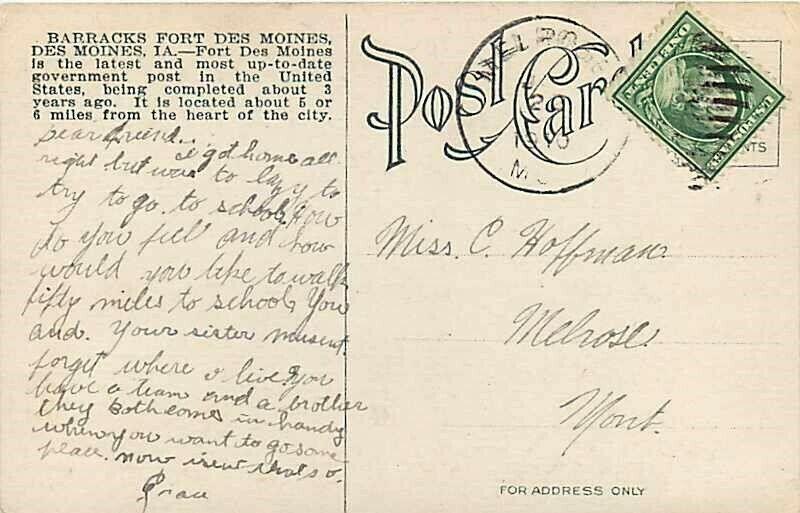 BARRACKS FORT DES MOINES,
DES MOINES, IA.—Fort Des Moines
is the latest and most up-to-date
government post in the United
States, being completed about 3
years ago. It is located about 5 or
6 miles from the heart of the city.
Dear friend.
I got home all
right but was to lazy to
try to go to school, How
do you feel and how
would you like to walk
fifty miles to school, You
and. Your sister musent.
forget where I live, You
have a team and a brother
they both comes in handy
when you want to go some
place. now isent that so.
Grace
Post Card
MELROSE
MO
Miss. C. Hoffman.
Melrose.
Mont.
FOR ADDRESS ONLY